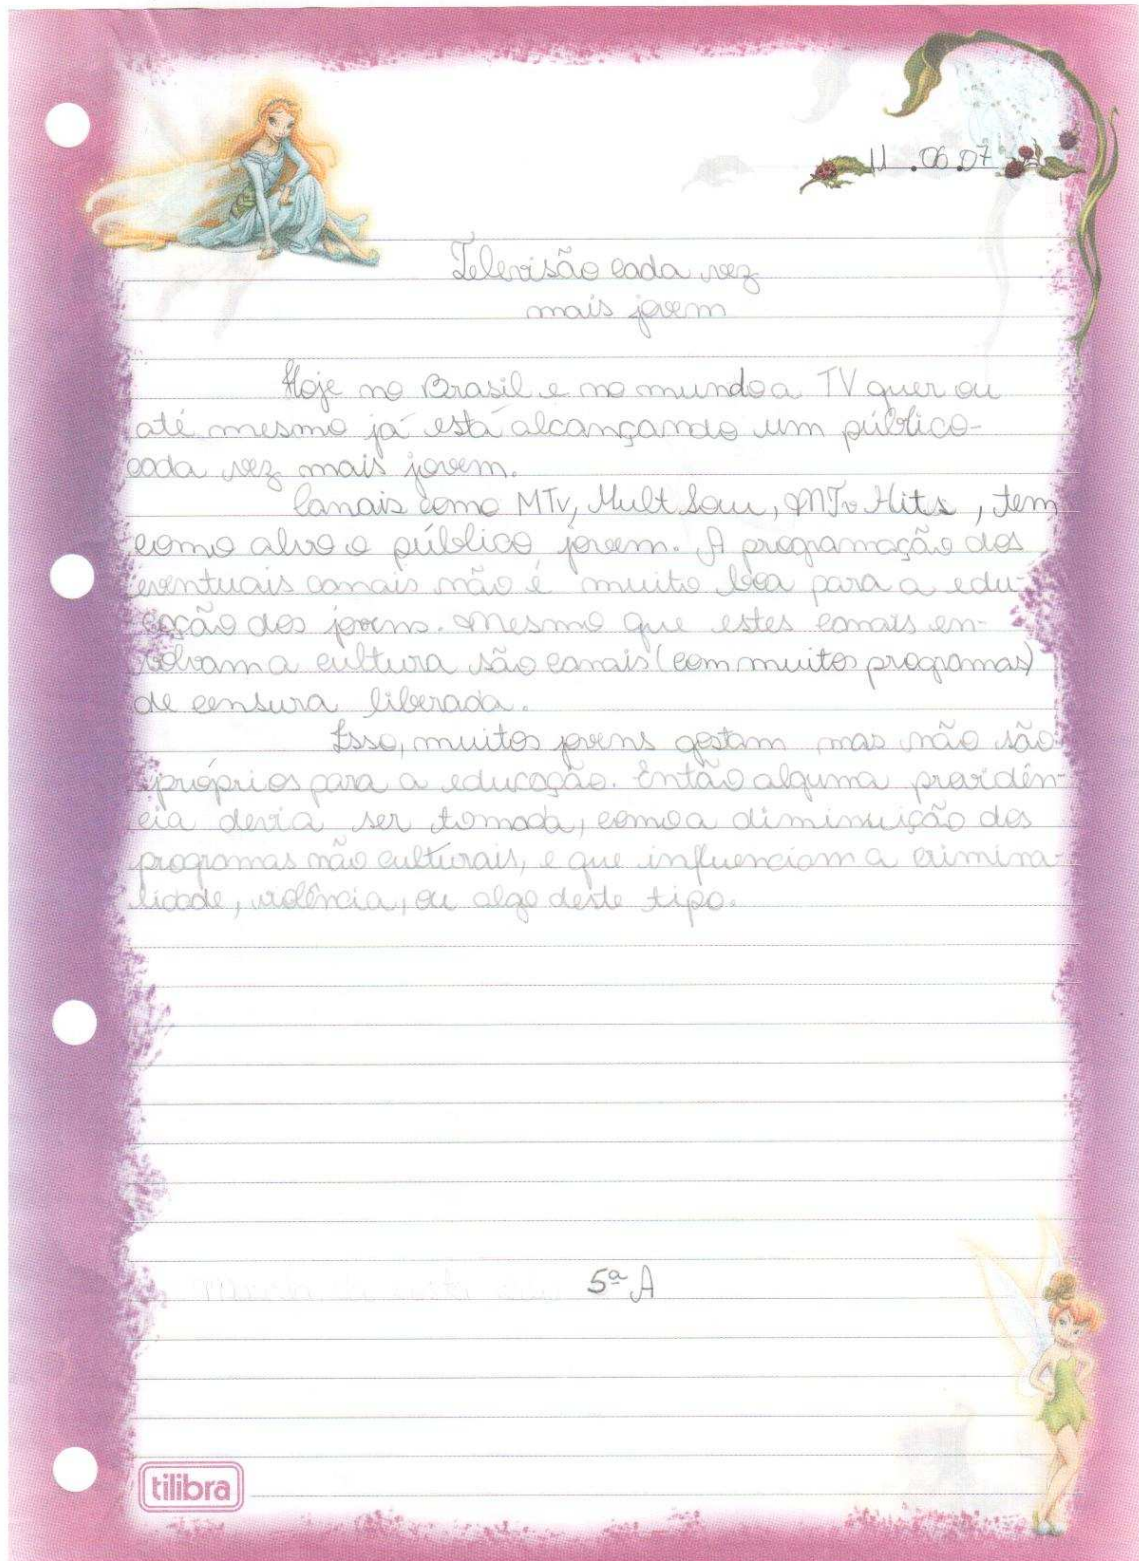 11.06.07
Televisão cada vez
mais jovem
Hoje no Brasil e no mundo a TV quer ou
até mesmo já está alcançando um público
cada vez mais jovem.
Canais como MTv, Mult Sou, MTv Hits, tem
como alvo o público jovem. A programação dos
eventuais canais não é muito boa para a edu-
cação dos jovens. Mesmo que estes canais en-
volvam a cultura são canais (com muitos programas)
de censura liberada.
Isso, muitos jovens gostam mas não são
próprios para a educação. Então alguma providên-
cia devia ser tomada, como a diminuição dos
programas não culturais, e que influenciam a crimina-
lidade, violência, ou algo deste tipo.
5ª A
tilibra